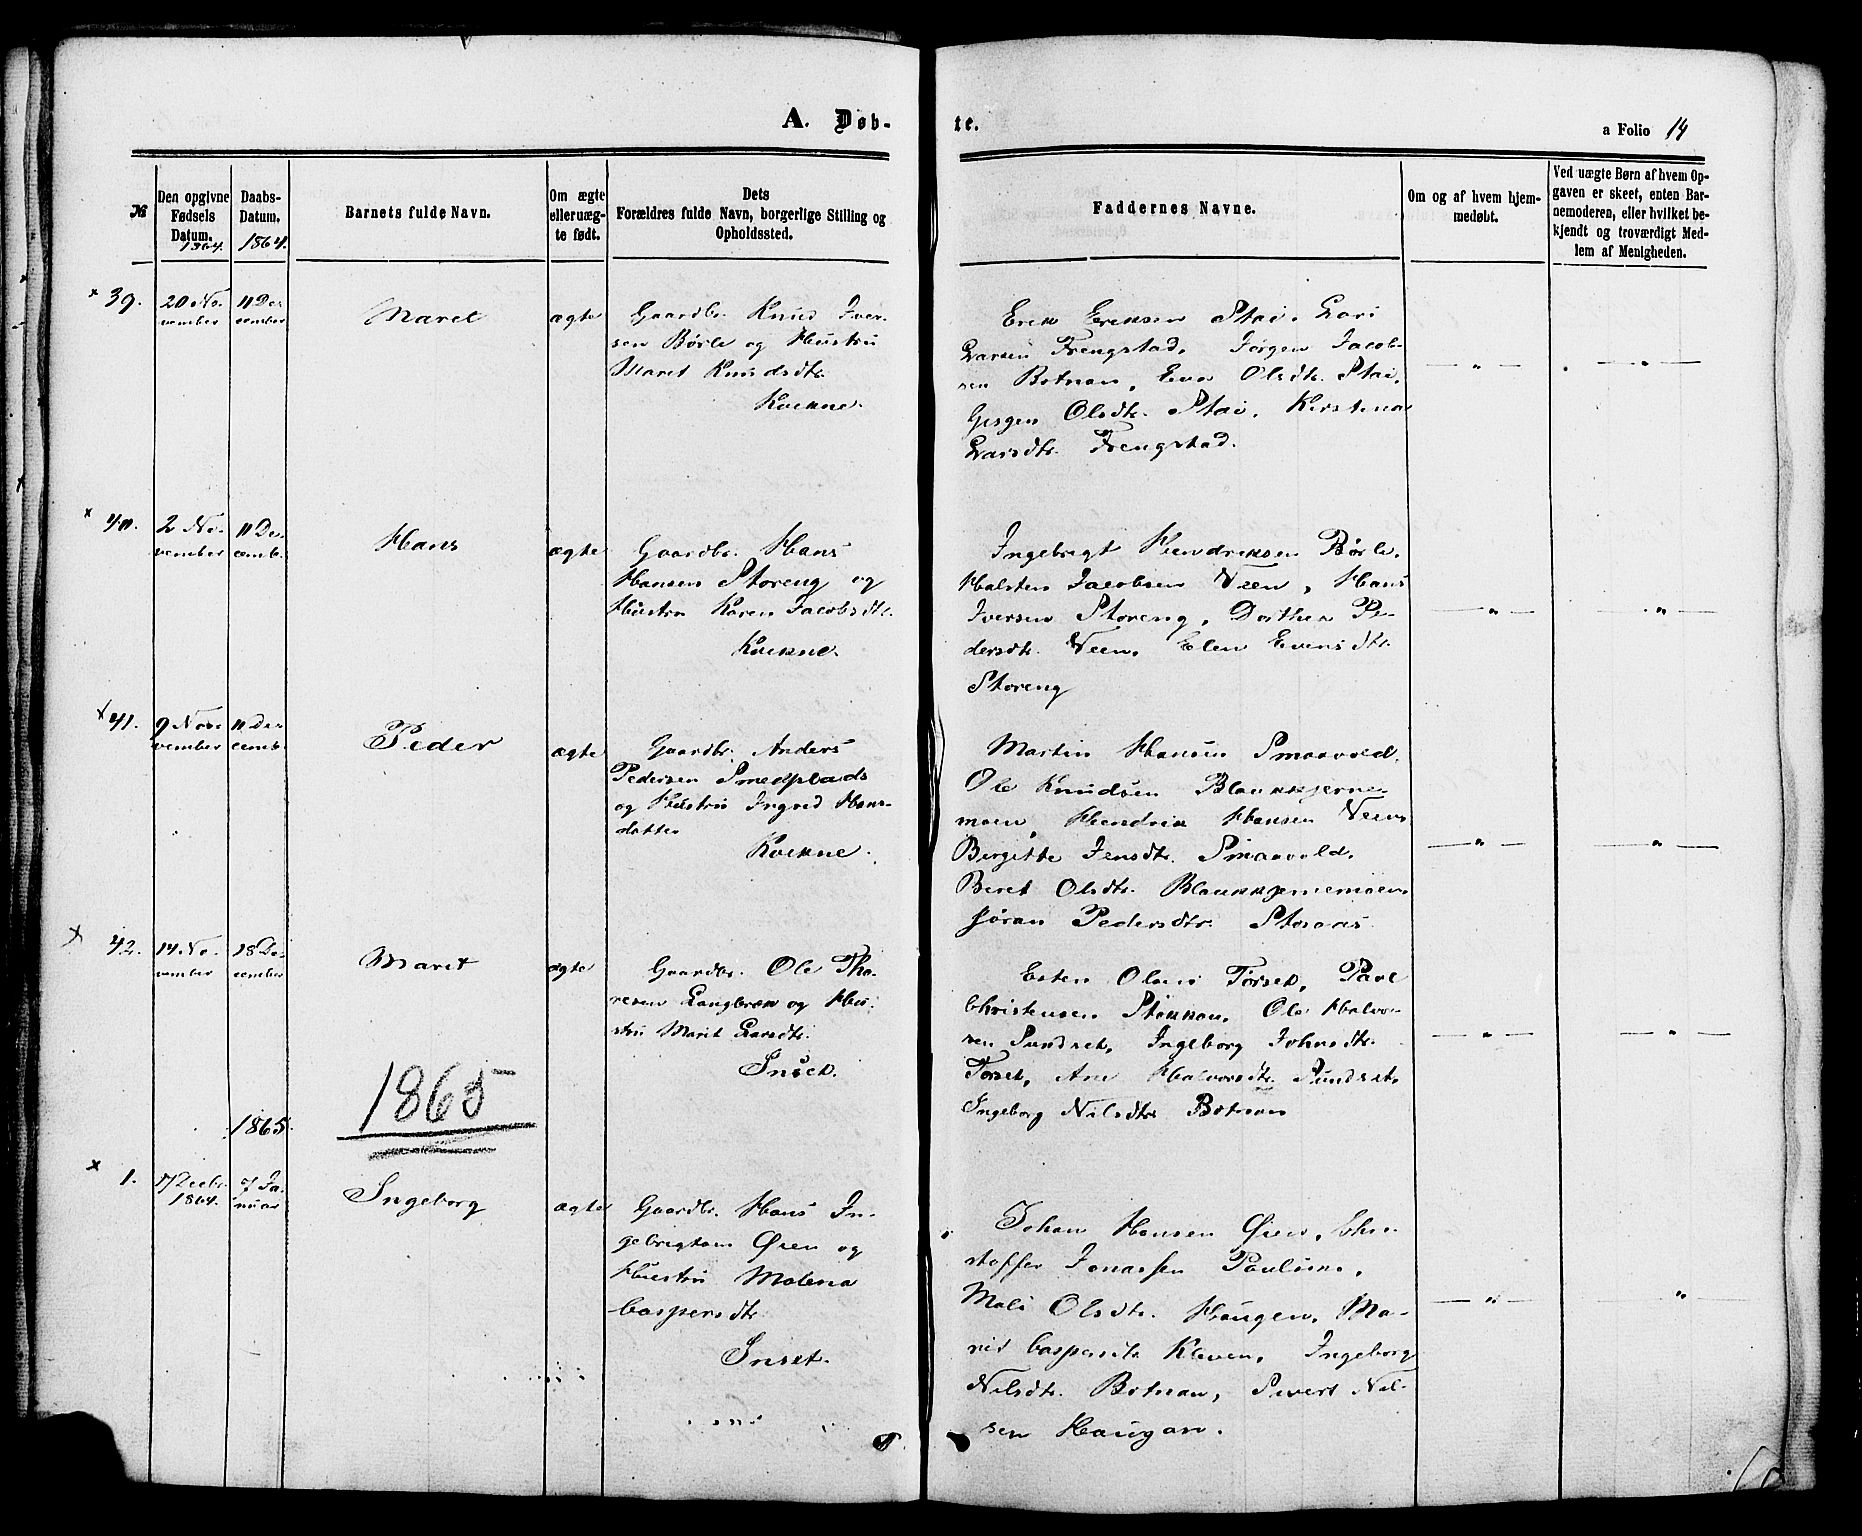 A. Døb-
te.
a Folio 14
№
Den opgivne
Fødsels
Datum.
1864.
Daabs-
Datum.
1864.
Barnets fulde Navn.
Om ægte
eller uæg-
te født.
Dets
Forældres fulde Navn, borgerlige Stilling og
Opholdssted.
Faddernes Navne.
Om og af hvem hjem-
medøbt.
Ved uægte Børn af hvem Op-
gaven er skeet, enten Bar-
nemoderen, eller hvilket be-
kjendt og troværdigt Med-
lem af Menigheden.
× 39.
20 No-
vember
11 De-
cember
Maret
ægte
Gaardbr. Knud Iver-
sen Børle og Hustru
Maret Knudsdtr.
Kvikne.
Erik Eriksen Stai. Lars
Larsen Frengstad. Jørgen Jacob-
sen Botnan, Eva Olsdtr. Stai.
Olsdtr. Stai. Kirstena
Larsdtr. Frengstad.
— " —
— " —
× 40.
2 No-
vember
11 De-
cemb.
Hans
ægte
Gaardbr. Hans
Hansen Storeng og
Hustru Karen Jacobsdtr.
Kvikne.
Ingebrigt Hendriksen Børle.
Halsten Jacobsen Veen, Hans
Iversen Storeng, Dorthea Pe-
dersdtr. Veen. Elen Evensdtr.
Storeng
— " —
— " —
× 41.
9 No-
vember
11 De-
cemb.
Peder
ægte
Gaardbr. Anders
Pedersen Smedplads
og Hustru Ingrid Hans-
datter
Kvikne.
Martin Hansen Smaavold.
Ole Knudsen Blaakkjerne-
moen, Hendrik Hansen Veen
Birgitte Jensdtr. Smaavold.
Beret Olsdtr. Blaakkjernemoen.
Jøran Pedersdtr. Storaas
— " —
— " —
× 42.
14 No-
vember
18 De-
cember
Maret
ægte
Gaardbr. Ole Tho-
resen Langbræk og Hu-
stru Marit Larsdtr.
Inset.
Esten Olsen Torset, Paul
Christensen Stokkan, Ole Halvor-
sen Sundset, Ingeborg Johnsdtr.
Torset, Ane Halvorsdtr. Sundset,
Ingeborg Nilsdtr. Botnan
— " —
— " —
1865.
1865
× 1.
17 Decbr.
1864.
7 Ja-
nuar
Ingeborg
ægte
Gaardbr. Hans In-
gebrigtsen Øien og
Hustru Malena
Caspersdtr.
Inset.
Johan Hansen Øien, Chri-
stoffer Jonassen
Mali Olsdtr. Haugen, Ma-
rit Caspersdtr Kleven, Ingeborg
Nilsdtr. Botnan, Sivert Nil-
sen Haugan.
— " —
"